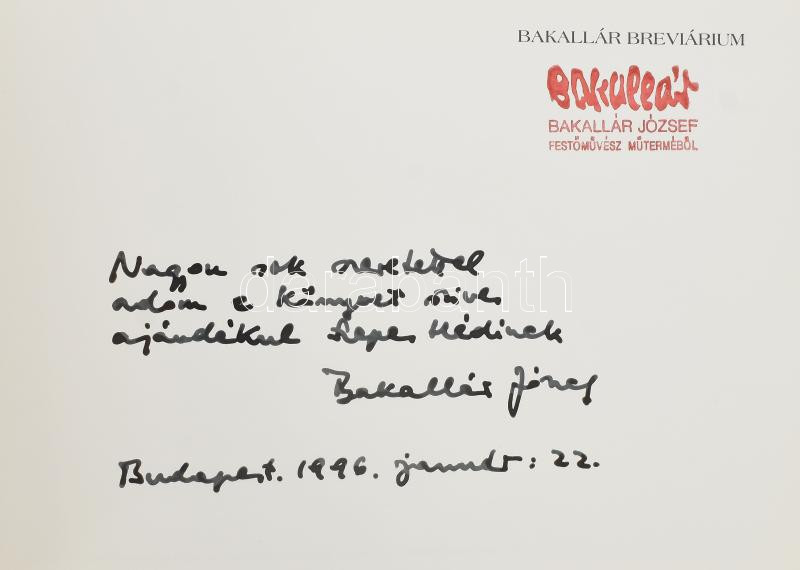 BAKALLÁR BREVIÁRIUM
Bakallár
BAKALLÁR JÓZSEF
FESTŐMŰVÉSZ MŰTERMÉBŐL
Nagyon sok szeretettel
adom e könyvet szíves
ajándékul Hédinek
darabanth
Bakallár József
Budapest. 1996. január: 22.